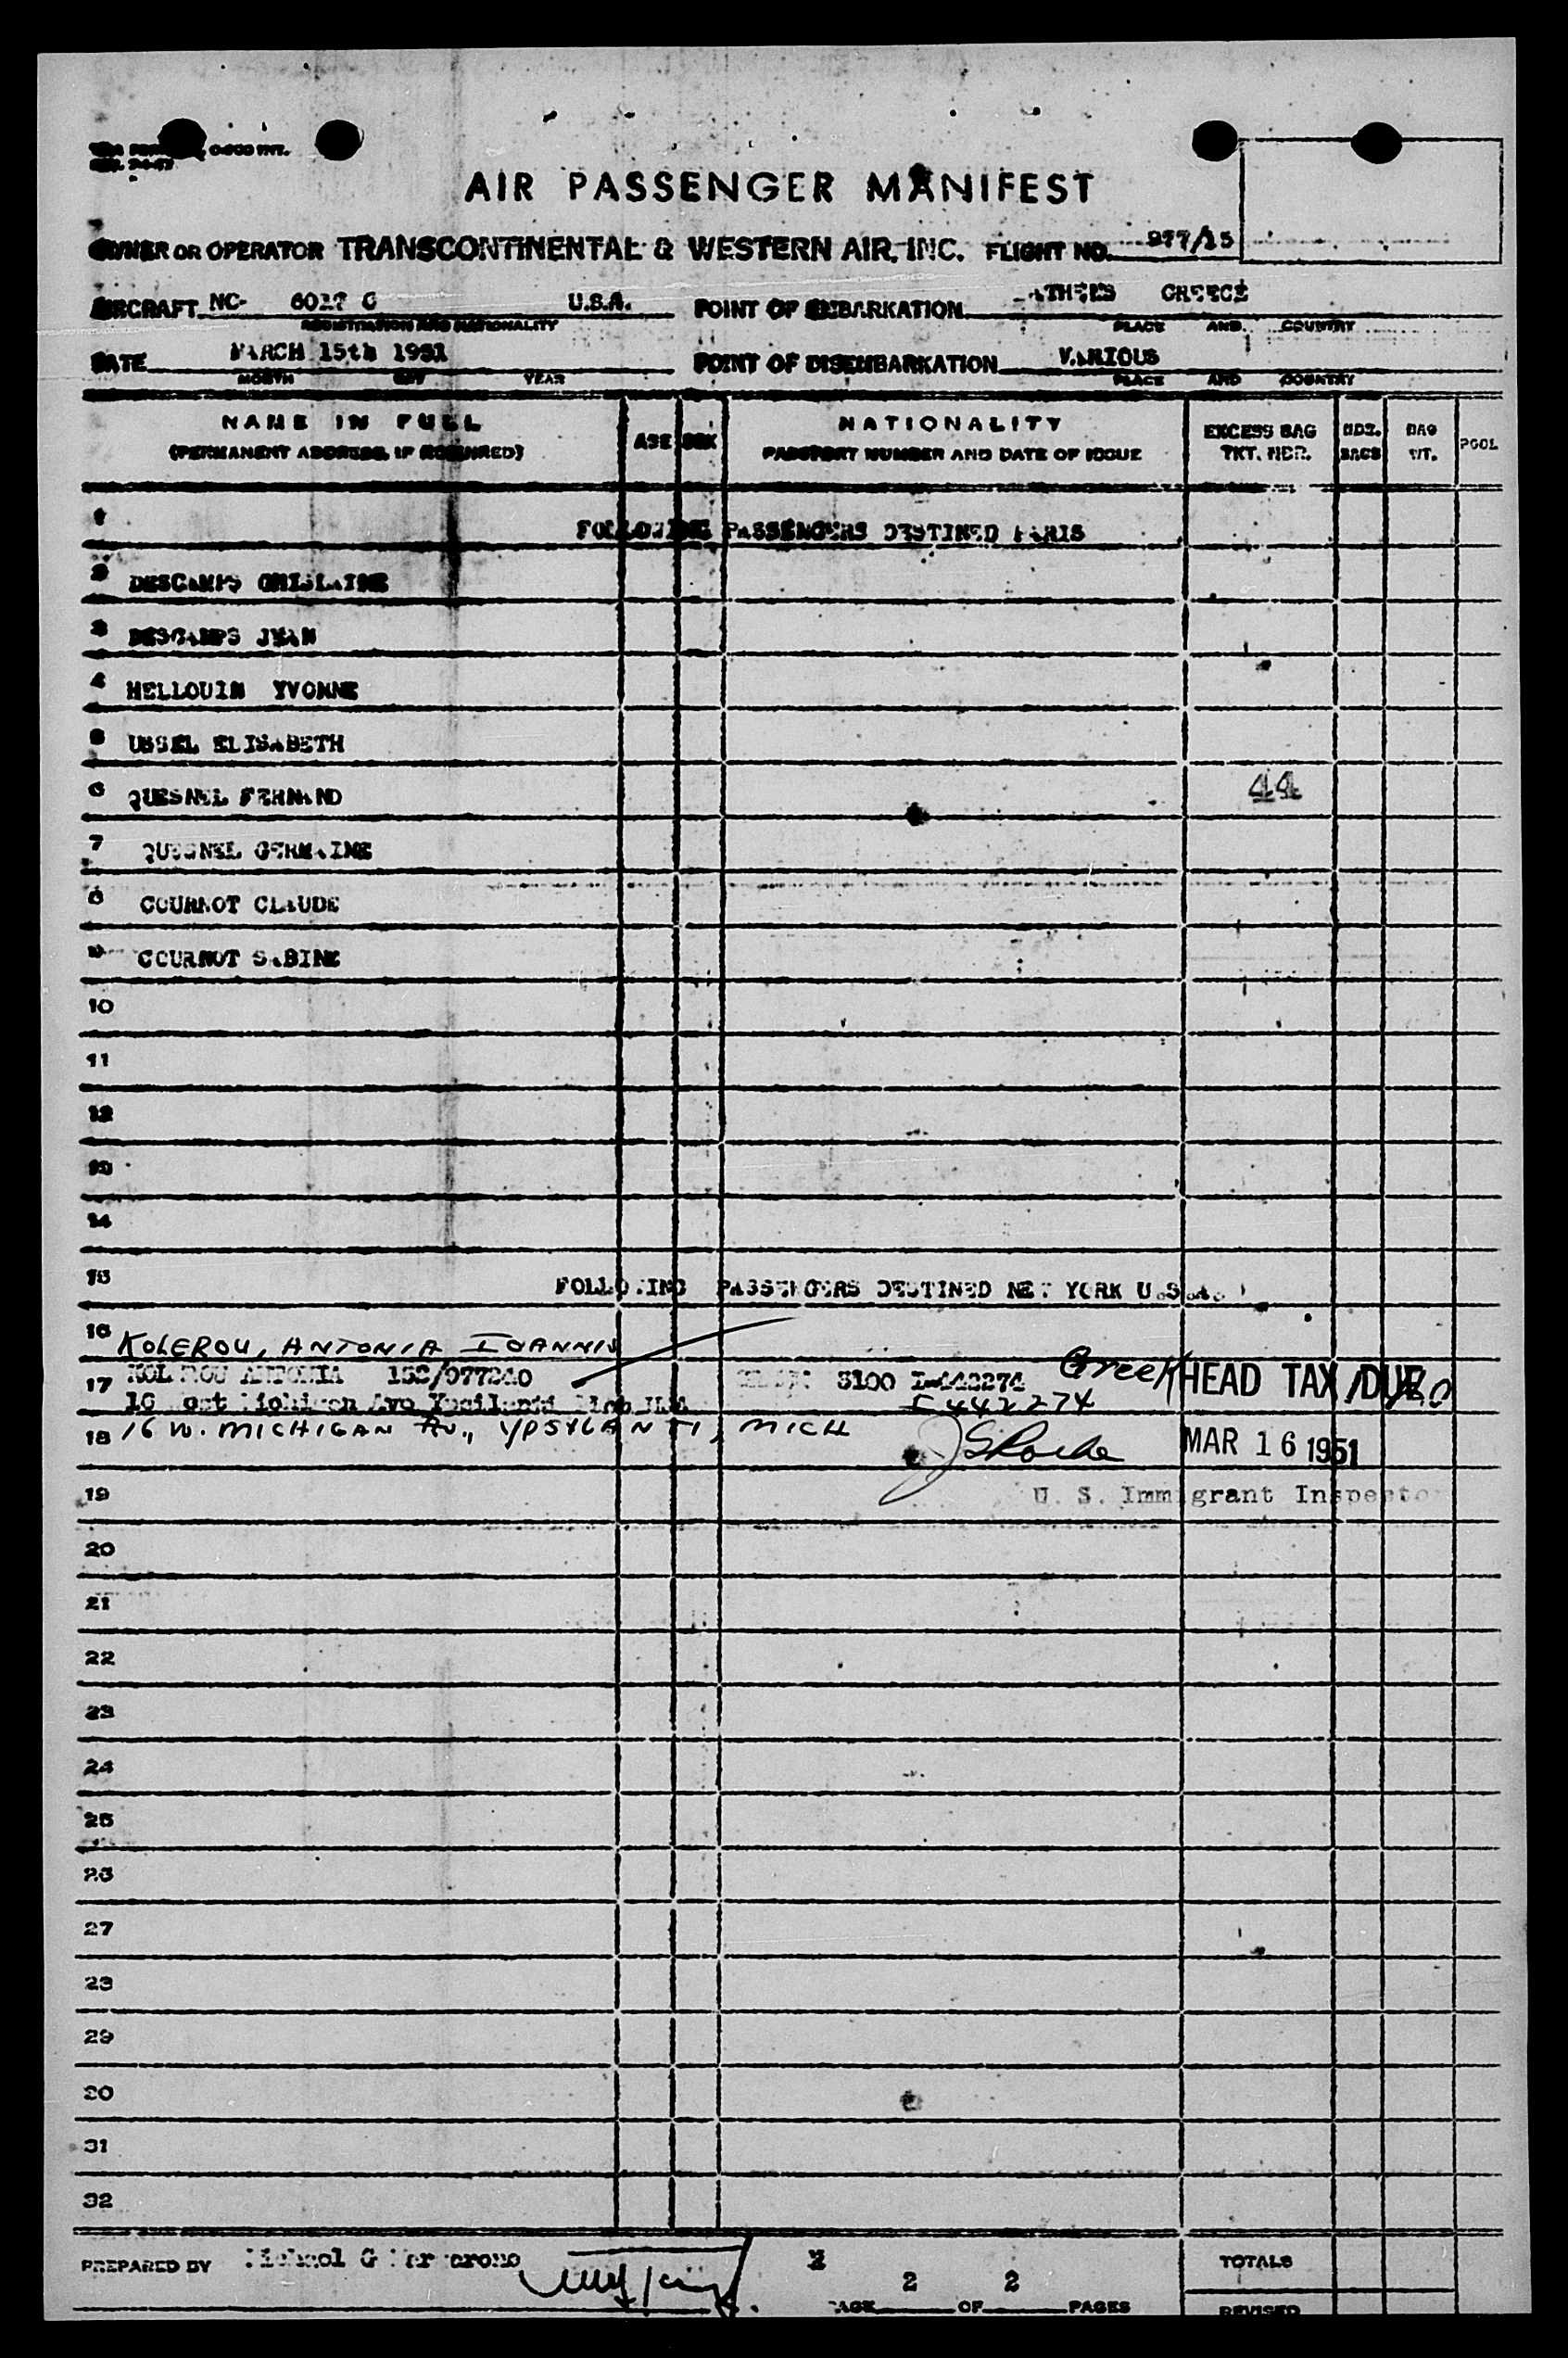 AIR PASSENGER MANIFEST
OWNER OR OPERATOR TRANSCONTINENTAL & WESTERN AIR, INC. FLIGHT NO. 977/15
AIRCRAFT NC- 6017 C U.S.A. POINT OF EMBARKATION ATHENS GREECE
REGISTRATION AND NATIONALITY PLACE AND COUNTRY
DATE MARCH 15th 1951 POINT OF DISEMBARKATION VARIOUS
MONTH DAY YEAR PLACE AND COUNTRY
NAME IN FULL
(PERMANENT ADDRESS, IF REQUIRED)
AGE SEX
NATIONALITY
PASSPORT NUMBER AND DATE OF ISSUE
EXCESS BAG
TKT. NBR.
NBR.
BAGS
BAG
WT.
POOL
1 FOLLOWING PASSENGERS DESTINED PARIS
2 DESCAMPS GHISLAINE
3 DESCAMPS JEAN
4 HELLOUIN YVONNE
5 USSEL ELISABETH
6 QUESNEL FERNAND 44
7 QUESNEL GERMAINE
8 COURNOT CLAUDE
9 COURNOT SABINE
10
11
12
13
14
15 FOLLOWING PASSENGERS DESTINED NEW YORK U.S.A.
16 KOLEROU, ANTONIA IOANNIS
17 KOLEROU ANTONIA 152/077240 3100 I-442274 Greek HEAD TAX DUE
16 West Michigan Ave Ypsilanti Mich USA I 442274
18 16 W. MICHIGAN AV., YPSYLANTI, MICH MAR 16 1951
19 U. S. Immigrant Inspector
20
21
22
23
24
25
26
27
28
29
30
31
32
PREPARED BY Michael G
PAGE 2 OF 2 PAGES
TOTALS
REVISED